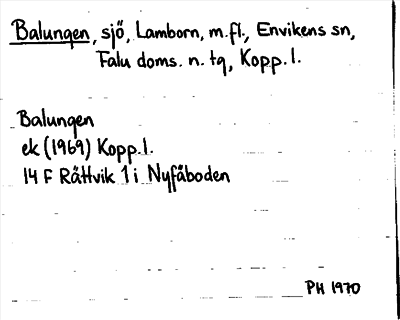 Balungen, sjö, Lamborn, m.fl., Envikens sn,
Falu doms. n. tg, Kopp.l.
Balungen
ek (1969) Kopp.l.
14 F Rättvik 1 i Nyfäboden
PH 1970